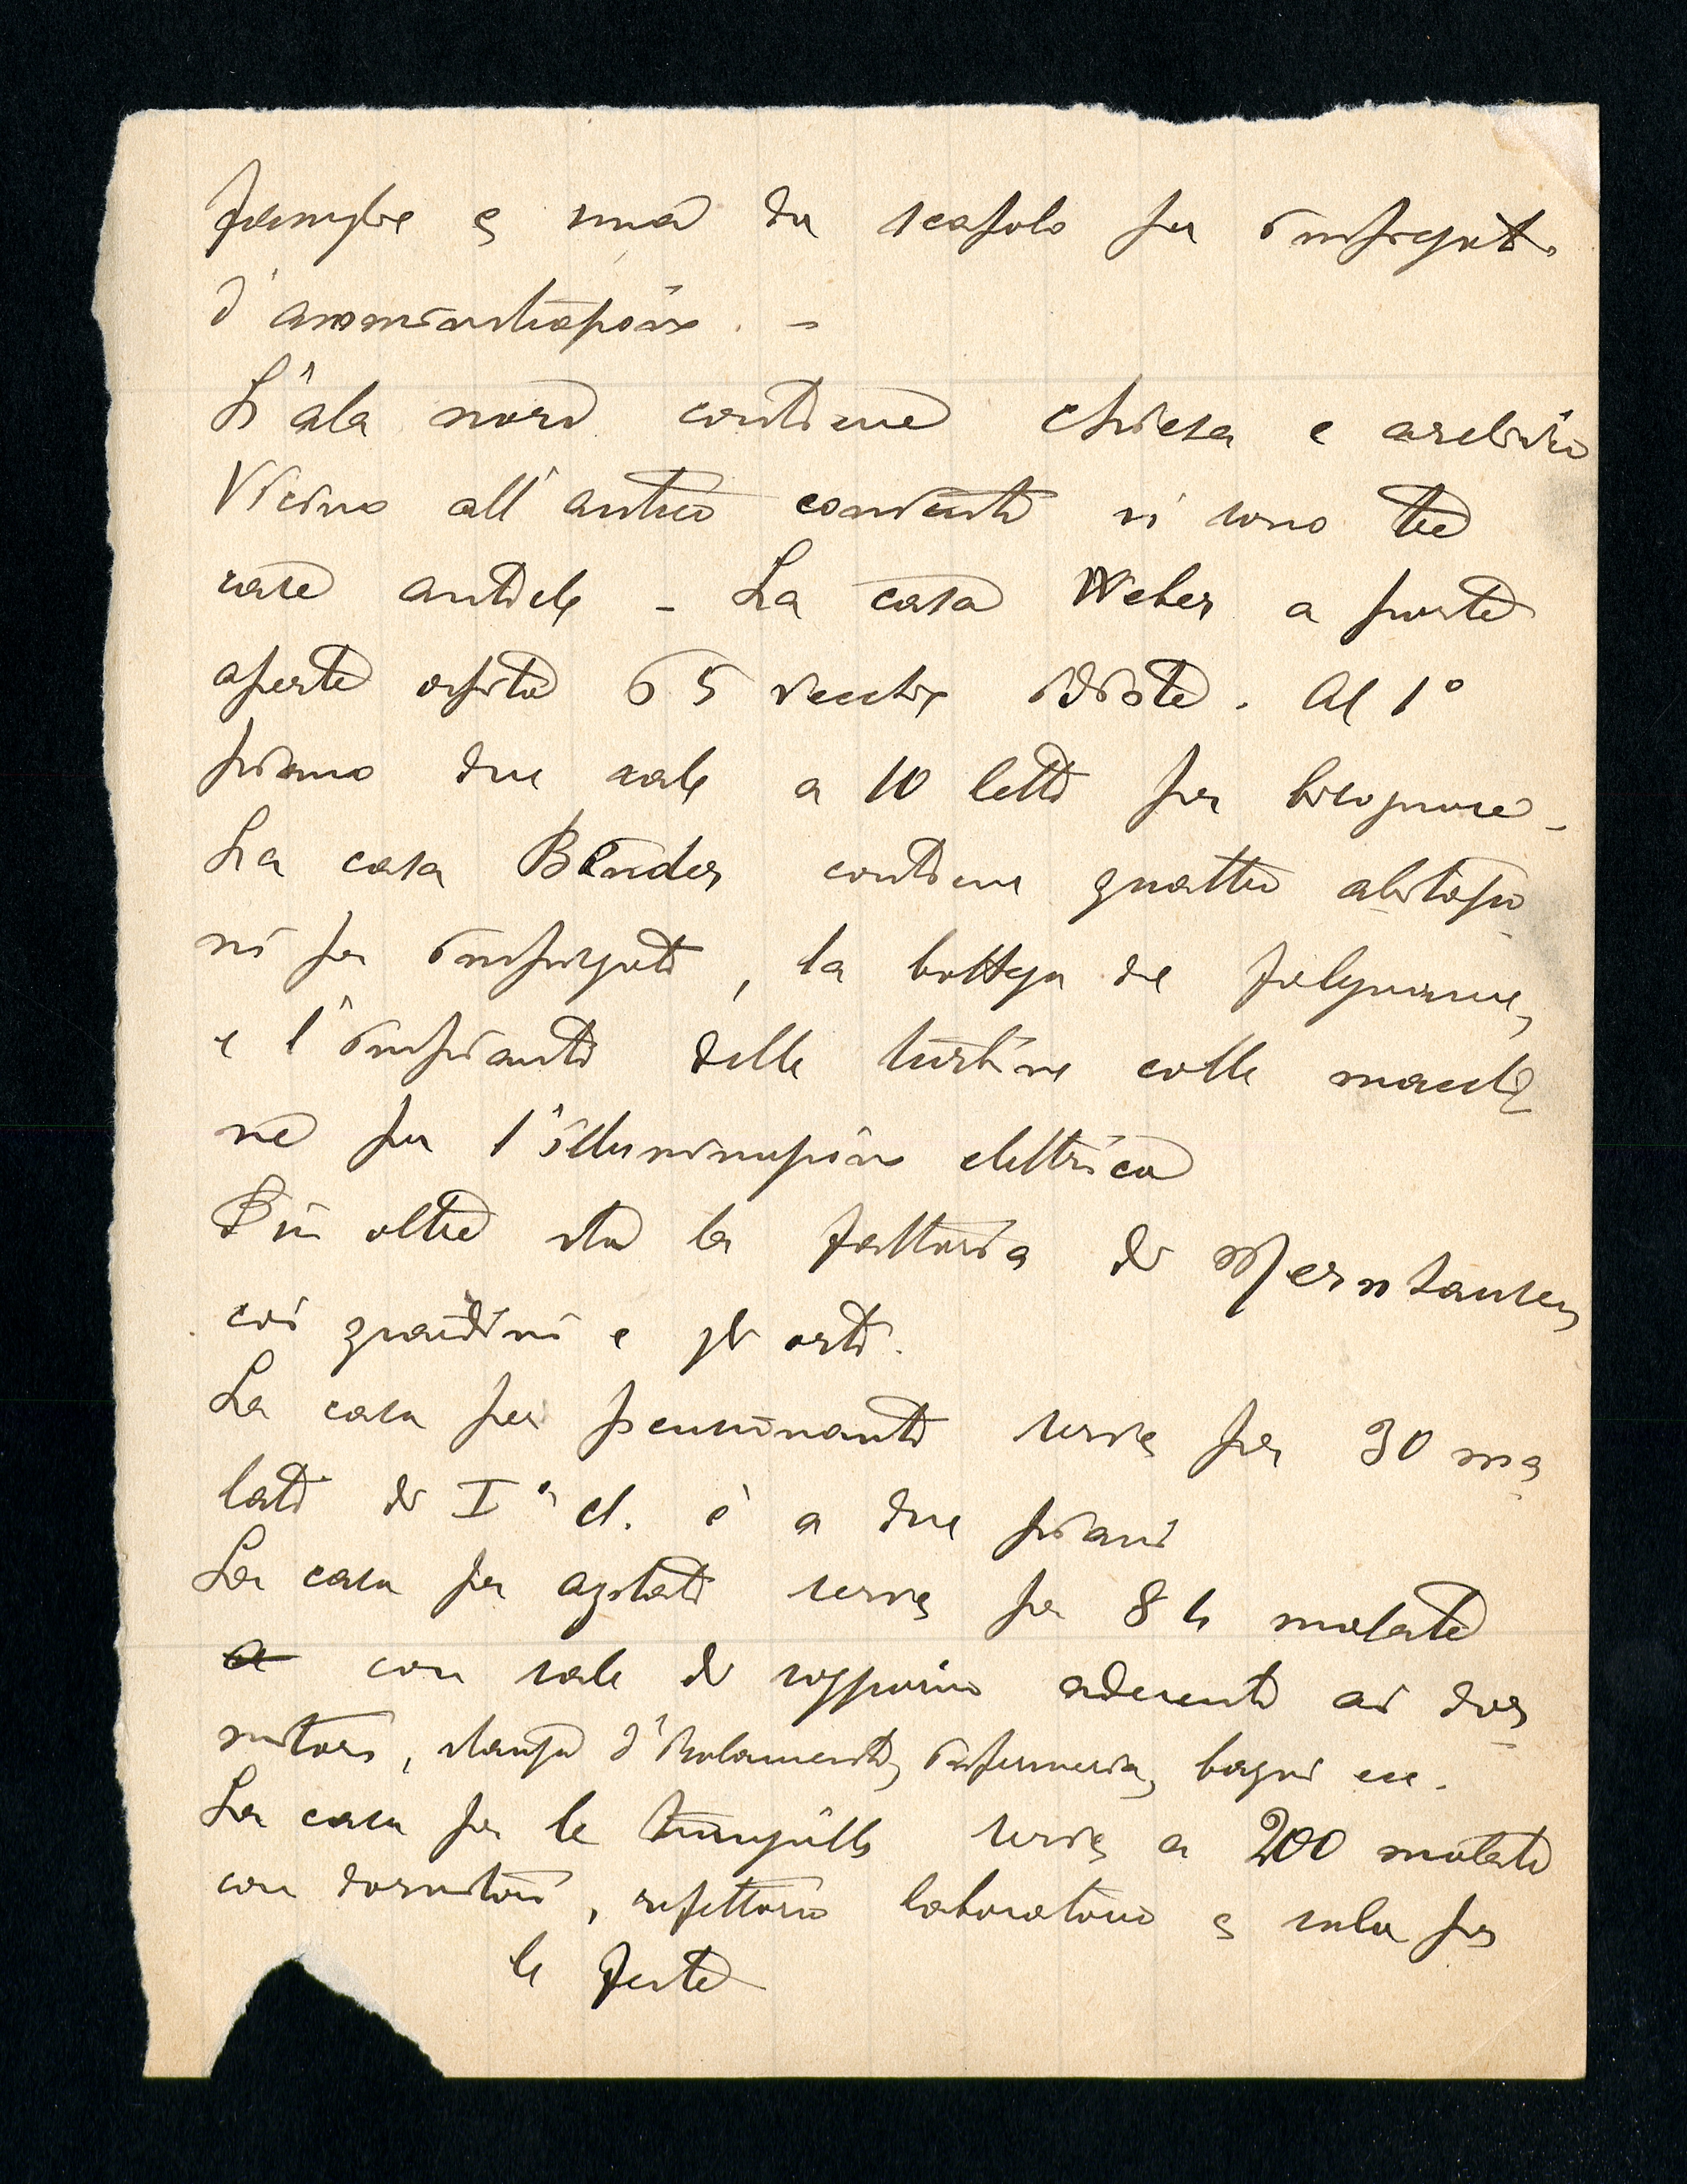 famiglie e una da scapolo per impiegati
d'amministrazione. –
L'ala nord contiene chiesa e archivio
Vicino all'antico convento vi sono tre
case antiche – La casa Weber a porte
aperte ospita 65 vecchie idiote. Al 1°
piano due sale a 10 letti per bisognose –
La casa Binder contiene quattro abitazio
ni per impiegati, la bottega del falegname,
e l'impianto delle turbine colle macchi
ne per l'illuminazione elettrica
Più oltre sta la fattoria di Mernhausen
coi giardini e gli orti.
La casa per pensionanti serve per 30 ma
lati di Iª cl. è a due piani
La casa per agitati serve per 84 malate
a con sale di soggiorno aderenti ai dor
mitori, stanze d'isolamento, infermeria, bagni ecc.
La casa per le tranquille serve a 200 malate
con dormitori, refettorio laboratorio e sala per
le feste